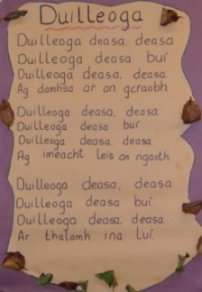 Duilleoga
Duilleoga deasa, deasa
Duilleoga deasa buí
Duilleoga deasa, deasa,
Ag damhsa ar an gcraobh
Duilleoga deasa, deasa
Duilleoga deasa buí
Duilleoga deasa, deasa
Ag imeacht leis an ngaoth.
Duilleoga deasa, deasa
Duilleoga deasa buí
Duilleoga deasa, deasa
Ar thalamh ina luí